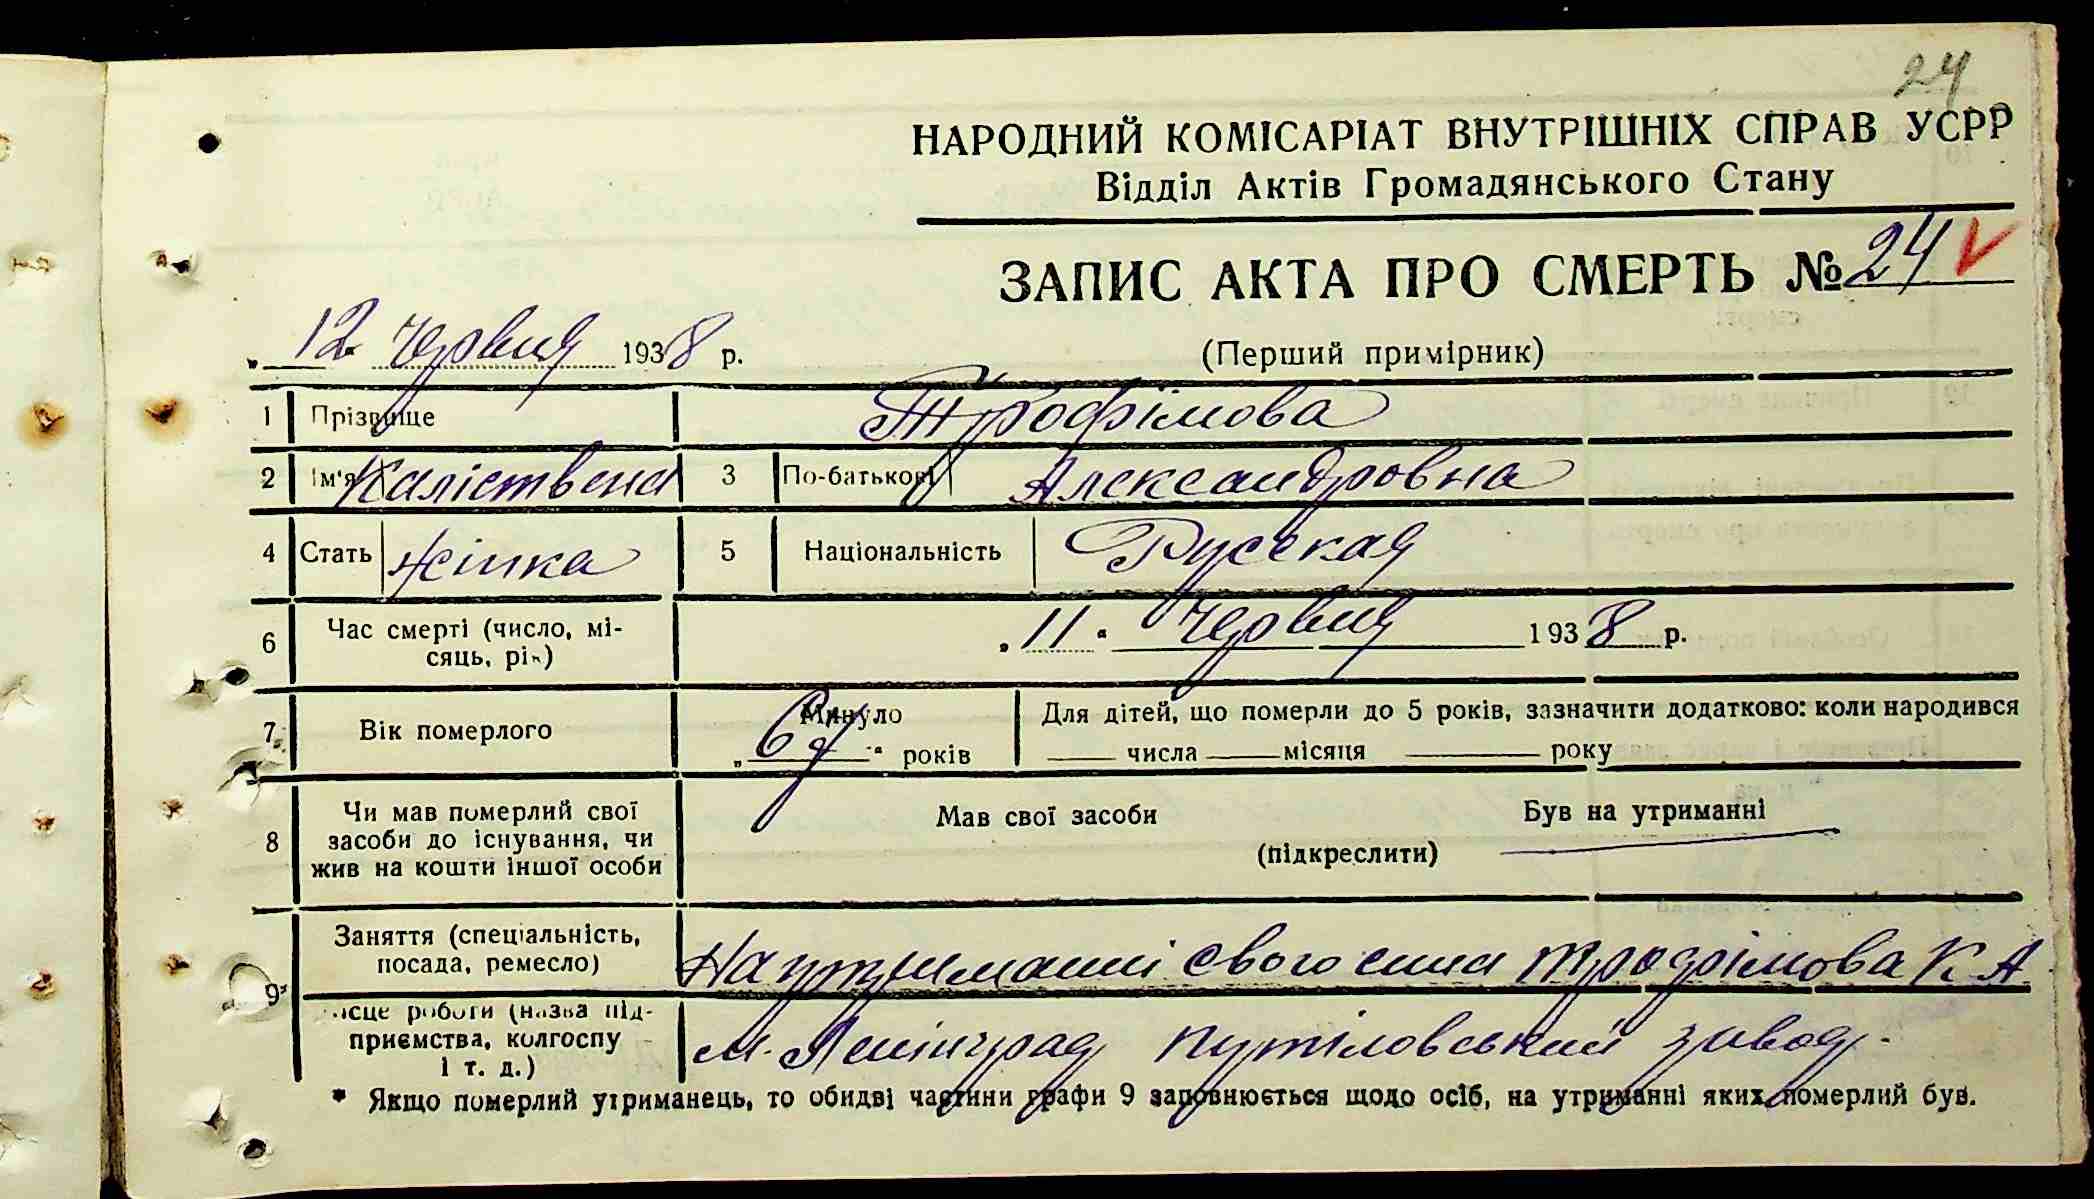 24
НАРОДНИЙ КОМІСАРІАТ ВНУТРІШНІХ СПРАВ УСРР
Відділ Актів Громадянського Стану
ЗАПИС АКТА ПРО СМЕРТЬ № 24
„ 12 червня 1938 р.
(Перший примірник)
1 Прізвище Трофімова
2 Ім'я Каліствена 3 По-батькові Александровна
4 Стать жінка 5 Національність Русская
6 Час смерті (число, місяць, рік) „ 11 “ червня 1938 р.
7 Вік померлого Минуло „ “ років Для дітей, що померли до 5 років, зазначити додатково: коли народився
числа місяця року
8 Чи мав померлий свої засоби до існування, чи жив на кошти іншої особи Мав свої засоби Був на утриманні
(підкреслити)
9* Заняття (спеціальність, посада, ремесло) На утриманні свого сина Трофімова К А.
ісце роботи (назва підприємства, колгоспу і т. д.) м. Ленінград Путіловський завод.
* Якщо померлий утриманець, то обидві частини графи 9 заповнюється щодо осіб, на утриманні яких померлий був.